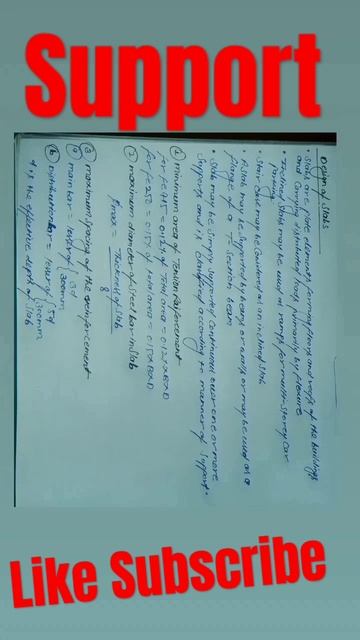 Support
Design of Slabs
• Slabs are plate element forming floors and roofs of the buildings
and carrying distributed loads primarily by flexure
• Inclined Slab may be used as ramps for multi-storey car
parking
• Stair case may be considered as an inclined Slab
• A slab may be supported by beams or walls or may be used as a
flange of a T-section beam
• Slab may be simply supported continuous over one or more
supports and is classified according to manner of support.
① minimum area of Tension reinforcement
for fe 415 = 0.12% of Total area = 0.12% BXD
for fe 250 = 0.15% of total area = 0.15% BXD
② maximum diameter of steel bar in slab
Φmax = Thickness of Slab
8
③ maximum spacing of the reinforcement
ⓐ main bar = lesser of { 3d
300mm
ⓑ Distribution bar = lesser of { 5d
300mm
d is the effective depth of slab
Like Subscribe